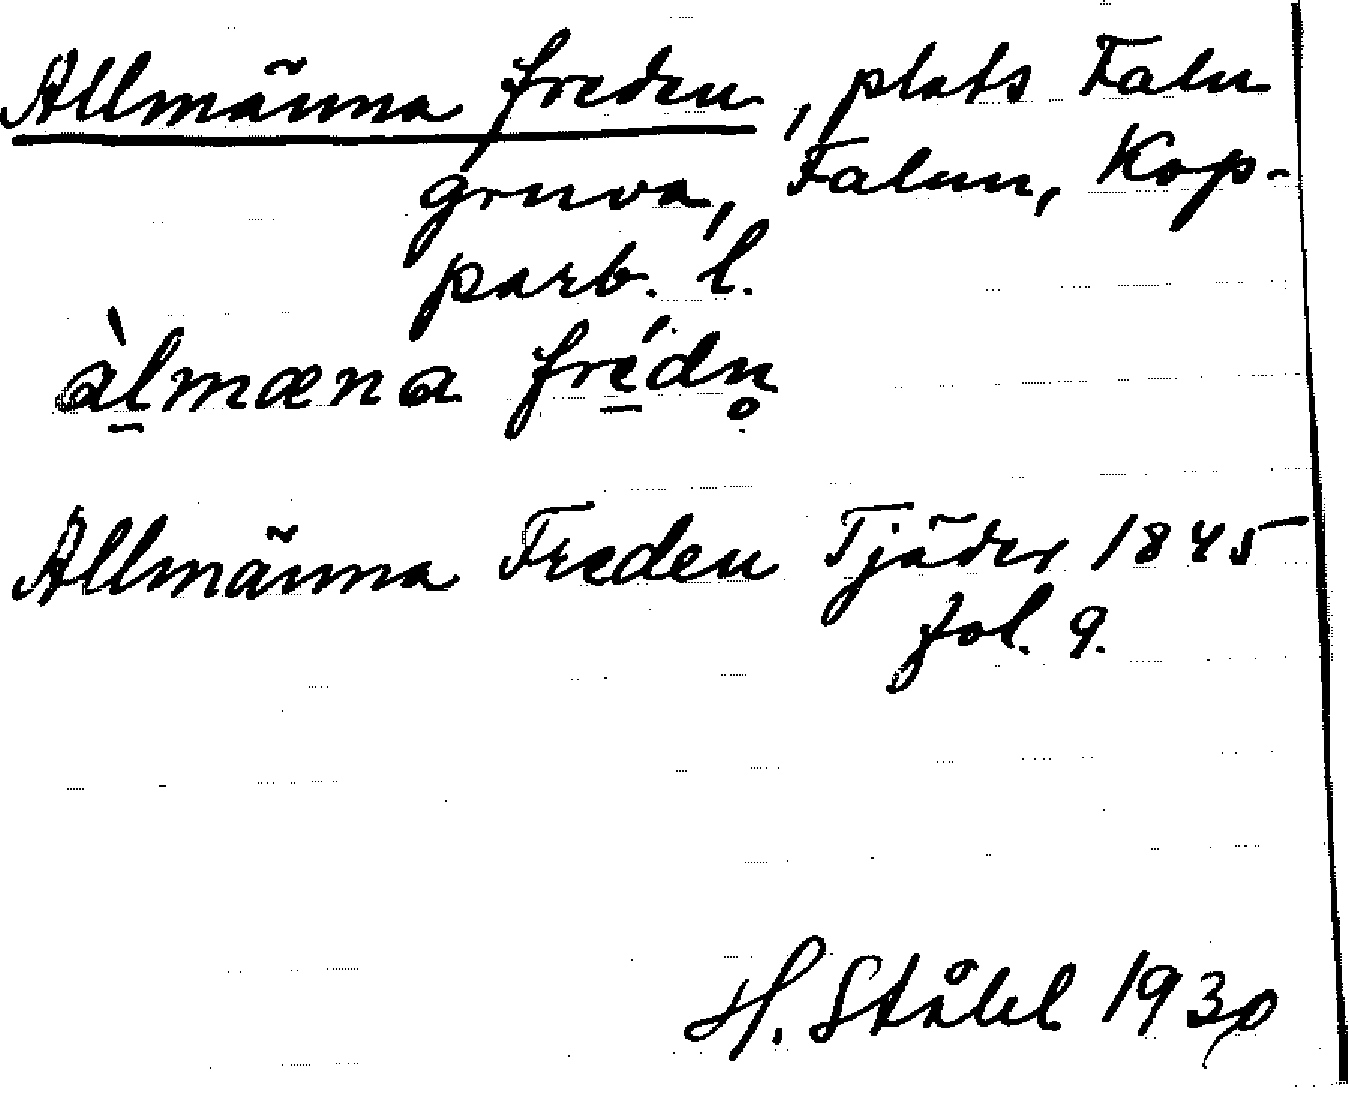 Allmänna freden, plats Falu
gruva, Falun, Kop-
parb. l.
àl̠mæna fré̠dn̥
Allmänna Freden Tjäder 1845
fol. 9.
H. Ståhl 1930